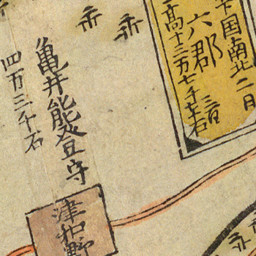 国南北二日
六郡
高十三万七千石
亀井能登守
四万三千石
津和野